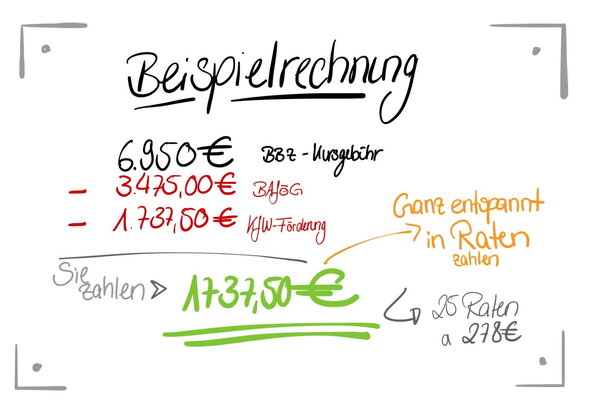 Beispielrechnung
6.950€ BBZ-Kursgebühr
- 3.475,00€ BAföG
- 1.737,50€ KfW-Förderung
Sie zahlen > 1737,50 €
Ganz entspannt
in Raten
zahlen
25 Raten
a 278€